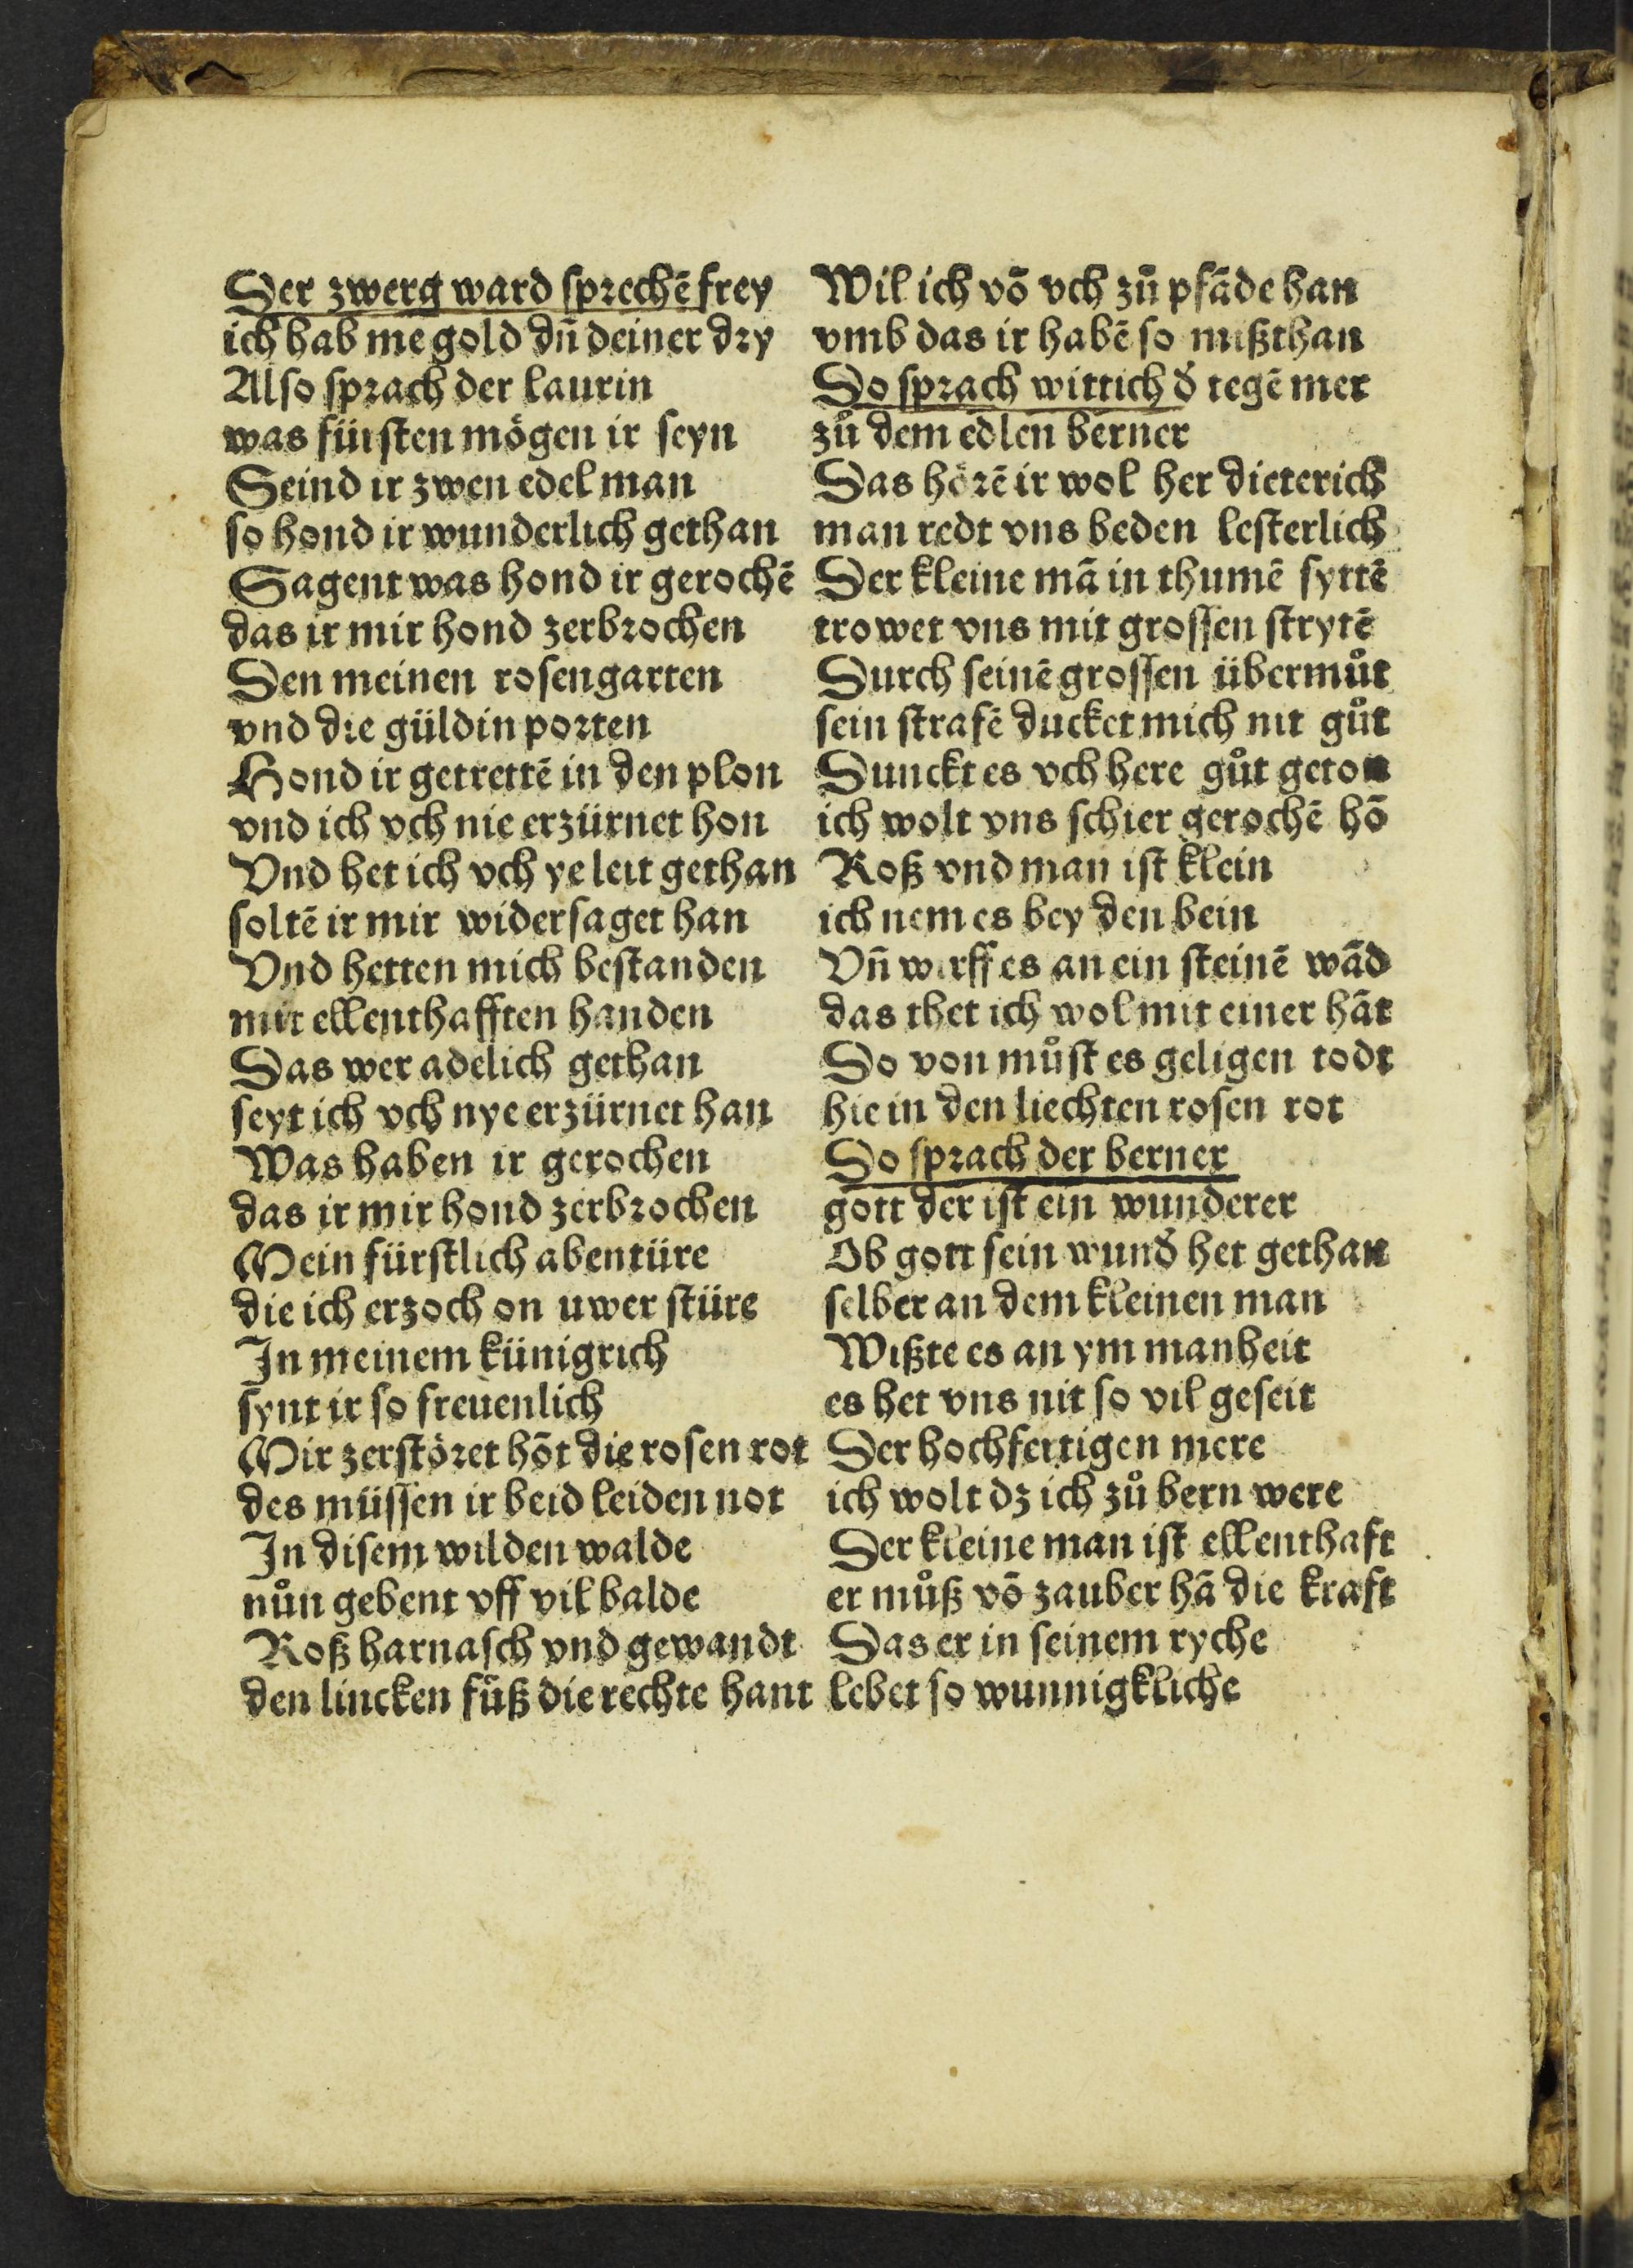 Der zwerg ward sprechē frey
ich hab me gold dñ deiner dry
Also sprach der laurin
was fürsten mögen ir seyn
Seind ir zwen edel man
so hond ir wunderlich gethan
Sagent was hond ir gerochē
das ir mir hond zerbrochen
Den meinen rosengarten
vnd die güldin porten
Hond ir getrettē in den plon
vnd ich vch nie erzürnet hon
Vnd het ich vch ye leit gethan
soltē ir mir widersaget han
Vnd hetten mich bestanden
mit ellenthafften handen
Das wer adelich gethan
seyt ich vch nye erzürnet han
Was haben ir gerochen
das ir mir hond zerbrochen
Mein fürstlich abentüre
die ich erzoch on uwer stüre
In meinem künigrich
synt ir so freuenlich
Mir zerstöret hōt die rosen rot
des müssen ir beid leiden not
In disem wilden walde
nůn gebent vff vil balde
Roß harnasch vnd gewandt
den lincken fůß die rechte hant
Wil ich vō vch zů pfāde han
vmb das ir habē so mißthan
Do sprach wittich d̕ tegē mer
zů dem edlen berner
Das hörē ir wol her dieterich
man redt vns beden lesterlich
Der kleine mā in thumē syttē
trowet vns mit grossen strytē
Durch seinē grossen übermůt
sein strafē ducket mich nit gůt
Dunckt es vch here gůt geton
ich wolt vns schier gerochē hō
Roß vnd man ist klein
ich nem es bey den bein
Vñ wirff es an ein steinē wād
das thet ich wol mit einer hāt
Do von můst es geligen todt
hie in den liechten rosen rot
Do sprach der berner
gott der ist ein wunderer
Ob gott sein wund̕ het gethan
selber an dem kleinen man
Wißte es an ym manheit
es het vns nit so vil geseit
Der hochfertigen mere
ich wolt dz ich zů bern were
Der kleine man ist ellenthaft
er můß vō zauber hā die kraft
Das er in seinem ryche
lebet so wunnigkliche